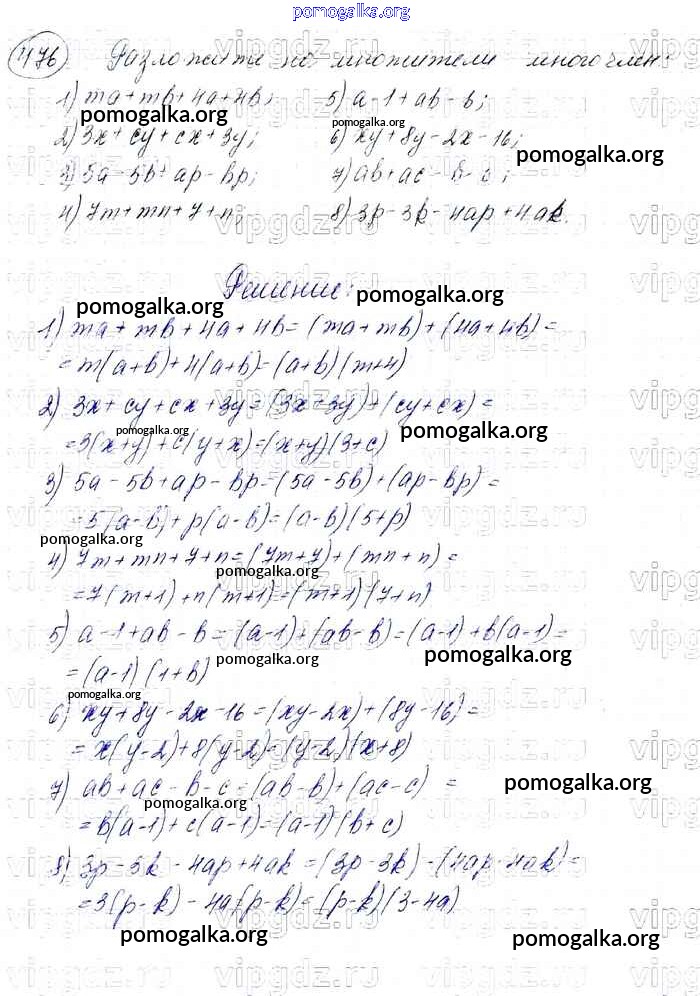 pomogalka.org
476 Разложите на множители многочлен:
1) ma+mb+4a+4b; 5) a-1+ab-b;
pomogalka.org
pomogalka.org
2) 3x+cy+cx+3y; 6) xy+8y-2x-16;
pomogalka.org
3) 5a-5b+ap-bp; 7) ab+ac-b-c;
4) 7m+mn+7+n; 8) 3p-3k-4ap+4ak.
pomogalka.org
Решение:
pomogalka.org
pomogalka.org
1) ma+mb+4a+4b=(ma+mb)+(4a+4b)=
=m(a+b)+4(a+b)=(a+b)(m+4)
2) 3x+cy+cx+3y=(3x+3y)+(cy+cx)=
pomogalka.org
pomogalka.org
=3(x+y)+c(y+x)=(x+y)(3+c)
3) 5a-5b+ap-bp=(5a-5b)+(ap-bp)=
=5(a-b)+p(a-b)=(a-b)(5+p)
pomogalka.org
4) 7m+mn+7+n=(7m+7)+(mn+n)=
pomogalka.org
=7(m+1)+n(m+1)=(m+1)(7+n)
5) a-1+ab-b=(a-1)+(ab-b)=(a-1)+b(a-1)=
pomogalka.org
pomogalka.org
=(a-1)(1+b)
pomogalka.org
6) xy+8y-2x-16=(xy-2x)+(8y-16)=
=x(y-2)+8(y-2)=(y-2)(x+8)
7) ab+ac-b-c=(ab-b)+(ac-c) =
pomogalka.org
pomogalka.org
=b(a-1)+c(a-1)=(a-1)(b+c)
8) 3p-3k-4ap+4ak=(3p-3k)-(4ap-4ak)=
=3(p-k)-4a(p-k)=(p-k)(3-4a)
pomogalka.org
pomogalka.org
vipgdz.ru